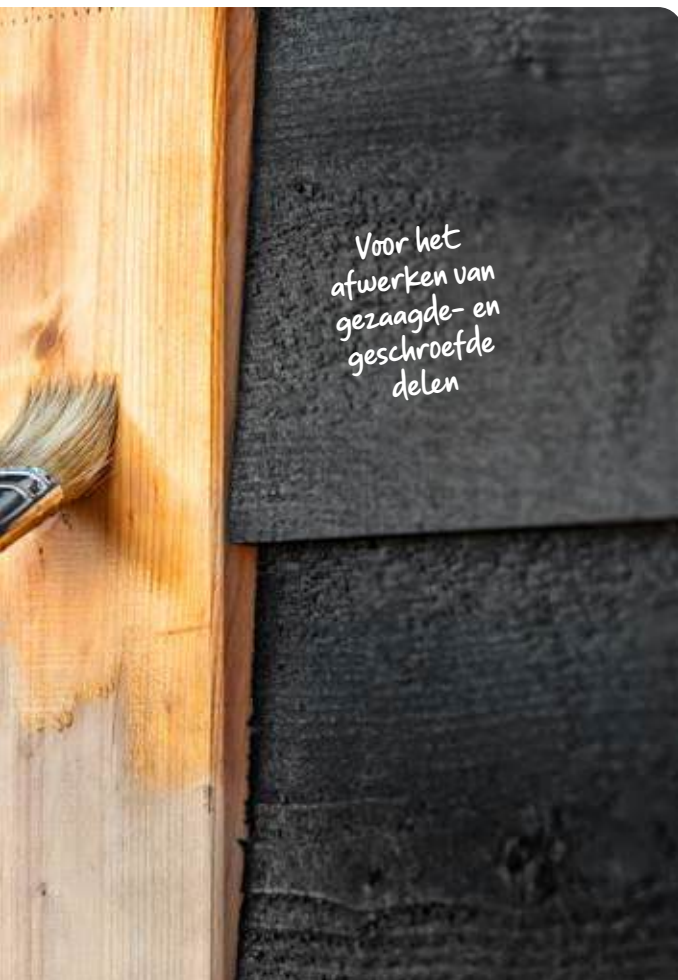 Voor het
afwerken van
gezaagde- en
geschroefde
delen